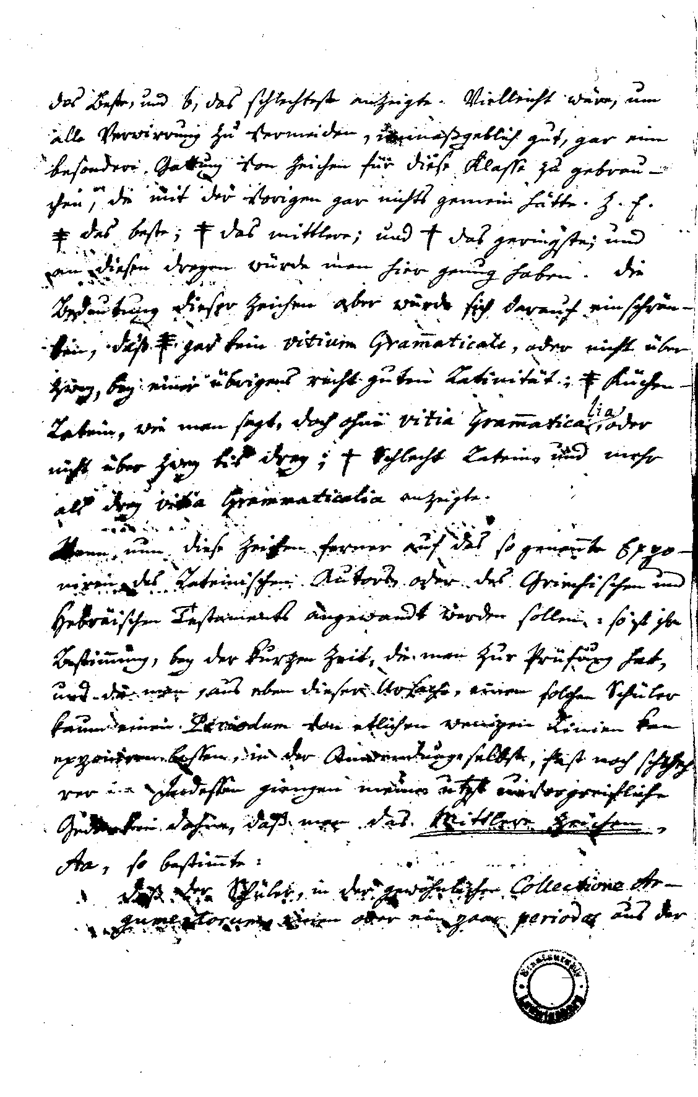 das Beste, und b, das schlechteste anzeigte. Vielleicht wäre, um
alle Verwirrung zu vermeiden, unmaßgeblich gut, gar eine
besondere Gattung von Zeichen für diese Klasse zu gebrau-
chen, die mit der vorigen gar nichts gemein hätte. Z. E.
‡ das beste; ‡ das mittlere; und † das geringste; und
an diesen dreyen würde man hier genug haben. Die
Bedeutung dieser Zeichen aber würde sich darauf einschrän-
ken, daß ‡ gar kein vitium Grammaticale, oder nicht über
zwey, bey einer übrigens recht guten Latinität; ‡ Küchen-
Latein, wie man sagt, doch ohne vitia Grammaticalia, oder
nicht über zwey bis drey; † Schlecht Latein und mehr
als drey vitia Grammaticalia anzeigte.
Wenn nun diese Zeichen ferner auf das so genannte Expo-
niren des Lateinischen Autors oder des Griechischen und
Hebräischen Testaments angewandt werden sollen: so ist ihre
Bestimmung, bey der kurzen Zeit, die man zur Prüfung hat,
und da man aus eben dieser Ursache, einen solchen Schüler
kaum einen Periodum von etlichen wenigen Linien kan
exponiren lassen, in der Anwendunge selbst, fast noch schwe
rer. Indessen giengen meine unvorgreifliche
Gedanken dahin, daß man das Mittlere Zeichen,
Aa, so bestimmte:
daß der Schüler, in der gewöhnlichen Collectione Ar-
gumentorum einen oder ein paar periodos aus der
Staatsarchiv
Ludwigsburg